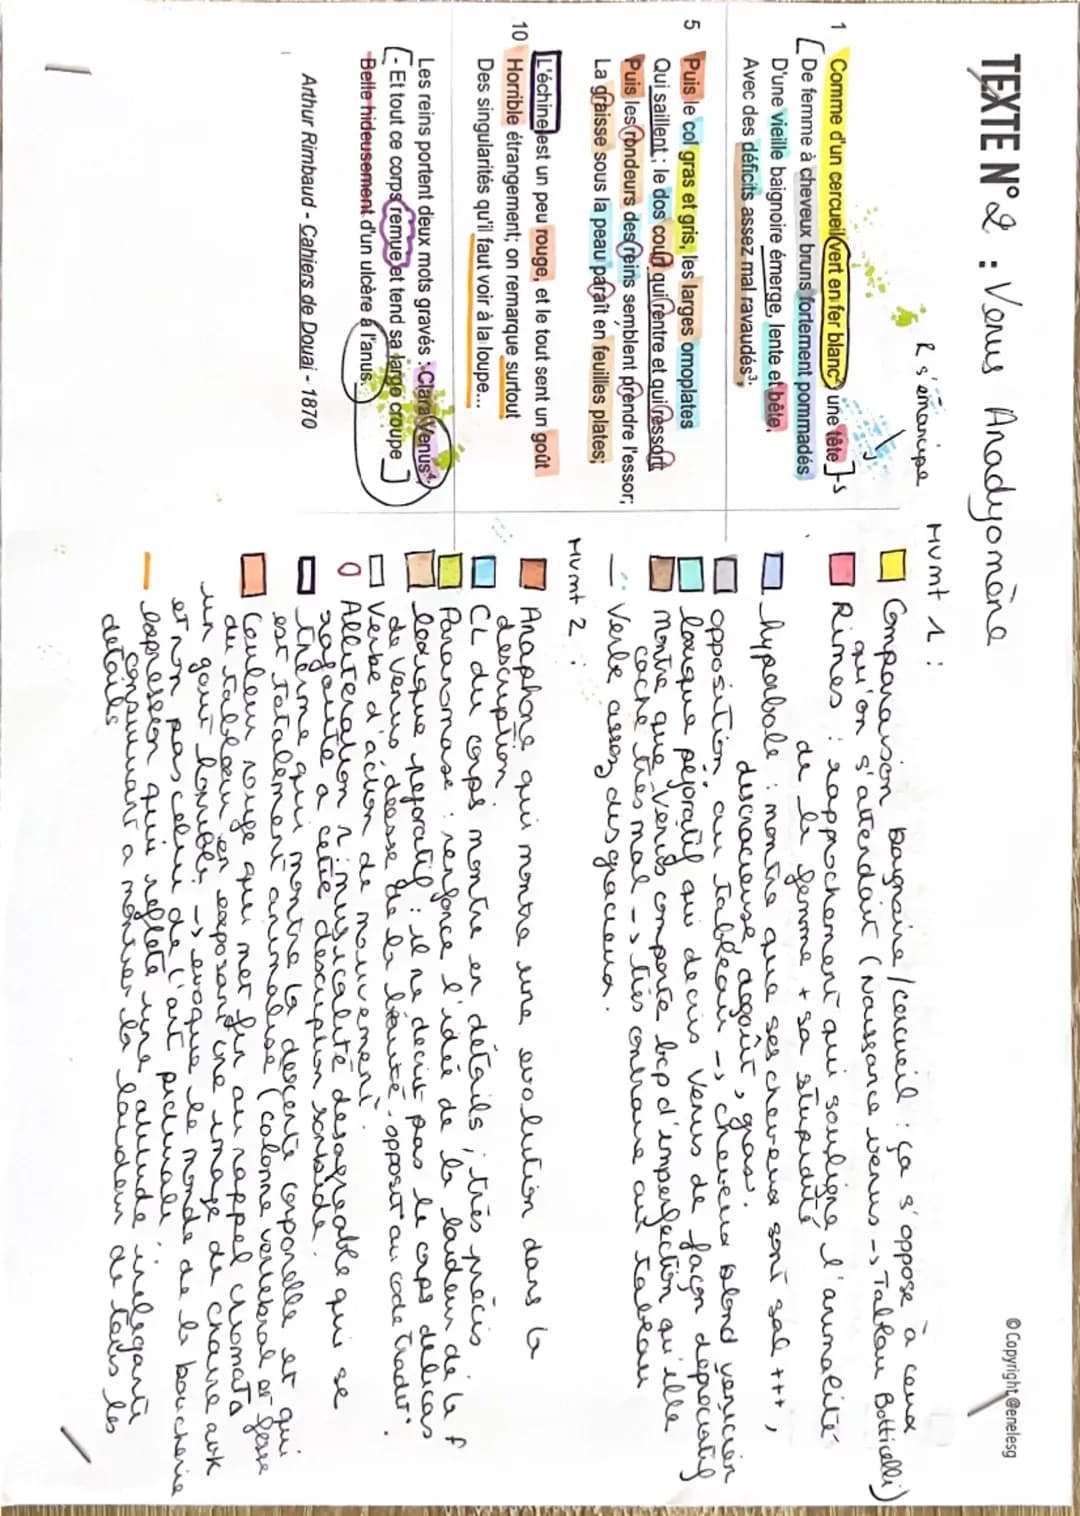 TEXTE N°2 : Venus Anadyomène
© Copyright @enelesg
R s'émancipe
1 Comme d'un cercueil vert en fer blanc², une tête
De femme à cheveux bruns fortement pommadés
D'une vieille baignoire émerge, lente et bête,
Avec des déficits assez mal ravaudés³;
5 Puis le col gras et gris, les larges omoplates
Qui saillent ; le dos court qui rentre et qui ressort
Puis les rondeurs des reins semblent prendre l'essor;
La graisse sous la peau paraît en feuilles plates;
L'échine est un peu rouge, et le tout sent un goût
10 Horrible étrangement; on remarque surtout
Des singularités qu'il faut voir à la loupe...
Les reins portent deux mots gravés : Clara Venus⁴;
- Et tout ce corps remue et tend sa large croupe
Belle hideusement d'un ulcère à l'anus.
Arthur Rimbaud - Cahiers de Douai - 1870
Mvmt 1 :
Comparaison baignoire / cercueil : ça s'oppose à ceux
qu'on s'attendait (Naissance venus -> Tableau Botticelli)
Rimes : rapprochement qui souligne l'animalité
de la femme + sa stupidité
hyperbole : montre que ses cheveux sont sal +++,
disgracieuse, dégoût, gras.
opposition au tableau -> cheveux blond vénicien
lexique péjoratif qui décris Venus de façon dépréciatif
montre que Venus comporte bcp d'imperfection qu'elle
cache très mal -> très contraire au tableau
Verbe assez disgracieux.
Mvmt 2 :
Anaphore qui montre une evolution dans la
description
CL du corps montre en détails ; très précis
Paranomase : renforce l'idée de la laideur de la f
lexique péjoratif : il ne décrit pas le corps délicas
de Venus déesse de la beauté, opposit au code tradit°.
Verbe d'action de mouvement.
Allitération r : musicalité désagréable qui se
rajoute à cette description sordide.
terme qui montre la descente corporelle et qui
est totalement animalisé (colonne vertébral et fesse
Couleur rouge qui met fin au rappel chromatq
du tableau en exposant une image de chaire avk
un gout horrible -> évoque le monde de la boucherie
et non pas celui de l'art picturale.
Expression qui reflète une attitude inélégante
consistant à montrer la laideur de tous les
détails